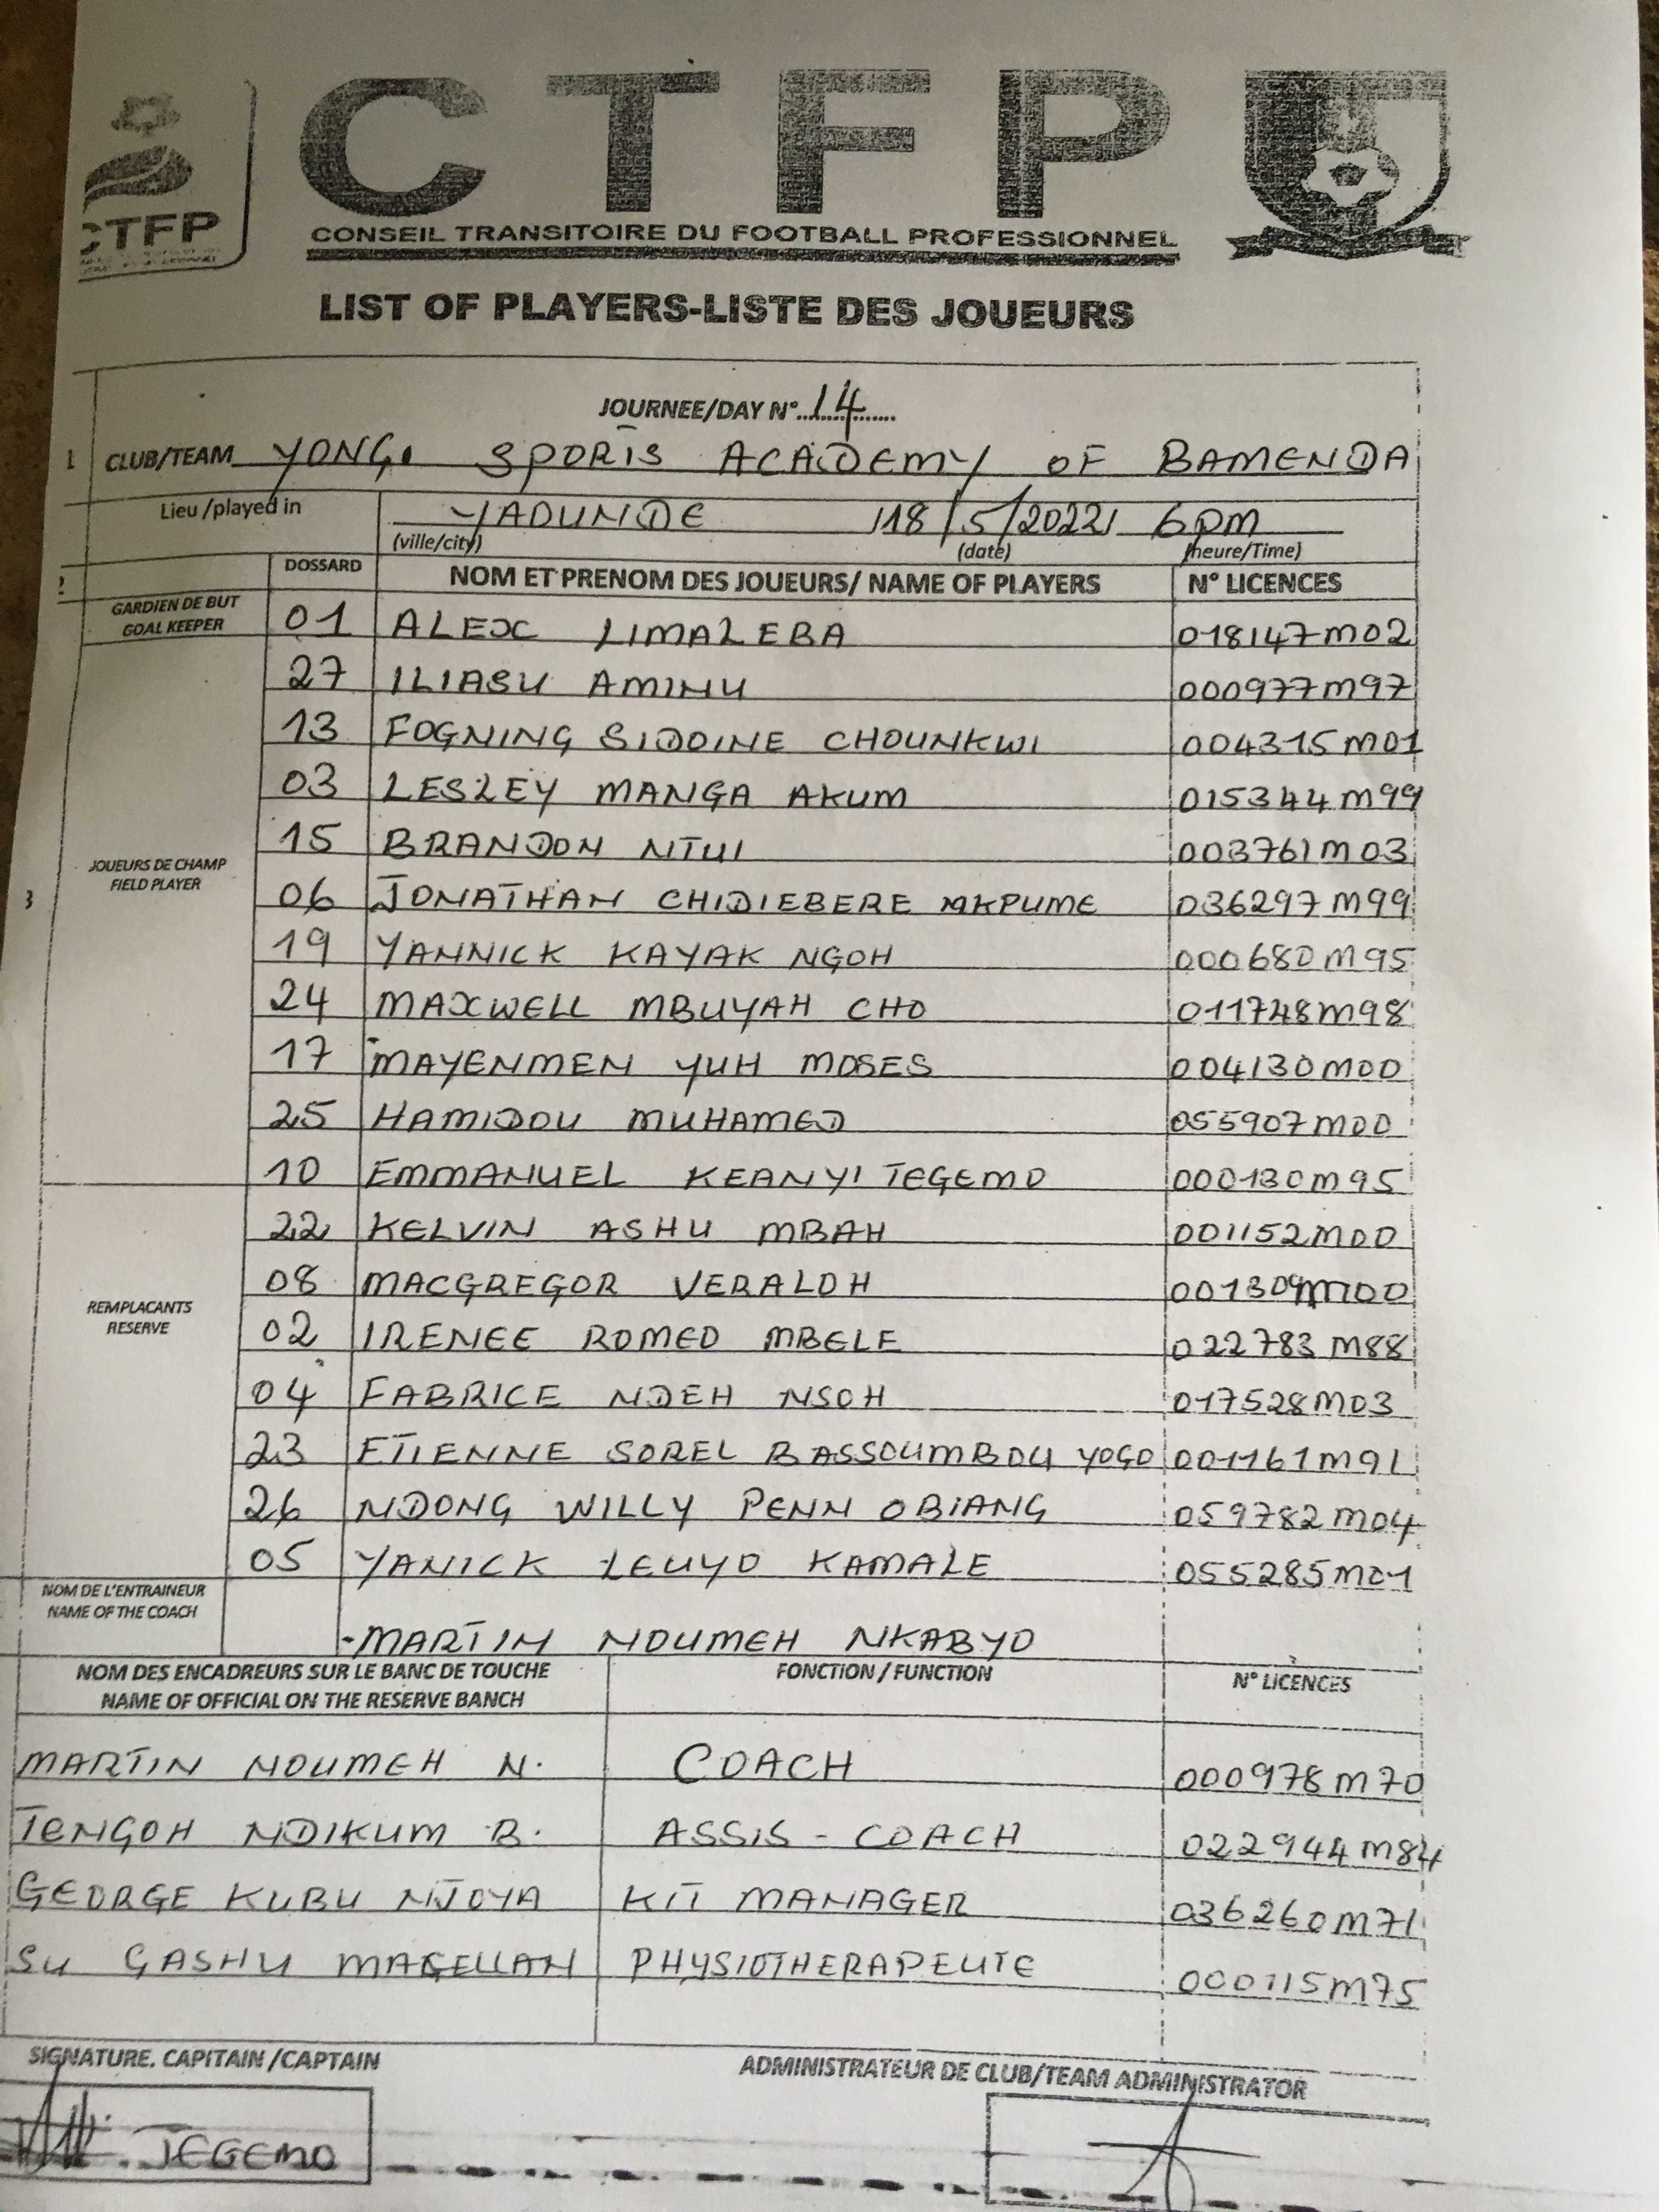 CTFP
CTFP
CONSEIL TRANSITOIRE DU FOOTBALL PROFESSIONNEL
LIST OF PLAYERS-LISTE DES JOUEURS
JOURNEE/DAY N°...14...
1 CLUB/TEAM YONG SPORTS ACADEMY OF BAMENDA
Lieu /played in YAOUNDE 18/5/2022 6PM
(ville/city) (date) (heure/Time)
DOSSARD NOM ET PRENOM DES JOUEURS/ NAME OF PLAYERS N° LICENCES
GARDIEN DE BUT
GOAL KEEPER
01 ALEX LIMALEBA 018147M02
27 ILIASU AMINU 000977M97
13 FOGNING SIDOINE CHOUNKWI 004315M01
03 LESLEY MANGA AKUM 015344M99
15 BRANDON NTUI 003761M03
3 JOUEURS DE CHAMP
FIELD PLAYER
06 JONATHAN CHIDIEBERE MKPUME 036297M99
19 YANNICK KAYAK NGOH 000680M95
24 MAXWELL MBUYAH CHO 011748M98
17 MAYENMEN YUH MOSES 004130M00
25 HAMIDOU MUHAMED 055907M00
10 EMMANUEL KEANYI TEGEMO 000130M95
22 KELVIN ASHU MBAH 001152M00
08 MACGREGOR VERALOH 001309M00
REMPLACANTS
RESERVE
02 IRENEE ROMEO MBELE 022783M88
04 FABRICE NDEH NSOH 017528M03
23 ETIENNE SOREL BASSOUMBOU YOGO 001161M91
26 NDONG WILLY PENN OBIANG 059782M04
05 YANICK LEUYO KAMALE 055285M01
NOM DE L'ENTRAINEUR
NAME OF THE COACH
-MARTIN NOUMEH NKABYO
NOM DES ENCADREURS SUR LE BANC DE TOUCHE
NAME OF OFFICIAL ON THE RESERVE BANCH
FONCTION / FUNCTION
N° LICENCES
MARTIN NOUMEH N. COACH 000978M70
TENGOH NDIKUM B. ASSIS - COACH 022944M84
GEORGE KUBU NJOYA KIT MANAGER 036260M71
SU GASHU MAGELLAN PHYSIOTHERAPEUTE 000115M75
SIGNATURE. CAPITAIN /CAPTAIN
ADMINISTRATEUR DE CLUB/TEAM ADMINISTRATOR
TEGEMO